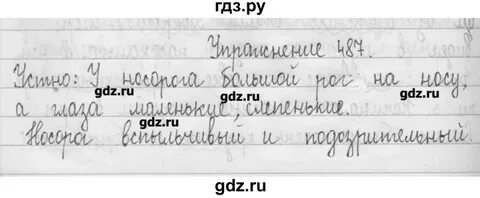 гдз.ру
Упражнение 487.
Устно: У носорога большой рог на носу,
gdz.ru gdz.ru
а глаза маленькие, слепенькие.
gdz.ru gdz.ru
Носора вспыльчивый и подозрительный
gdz.ru